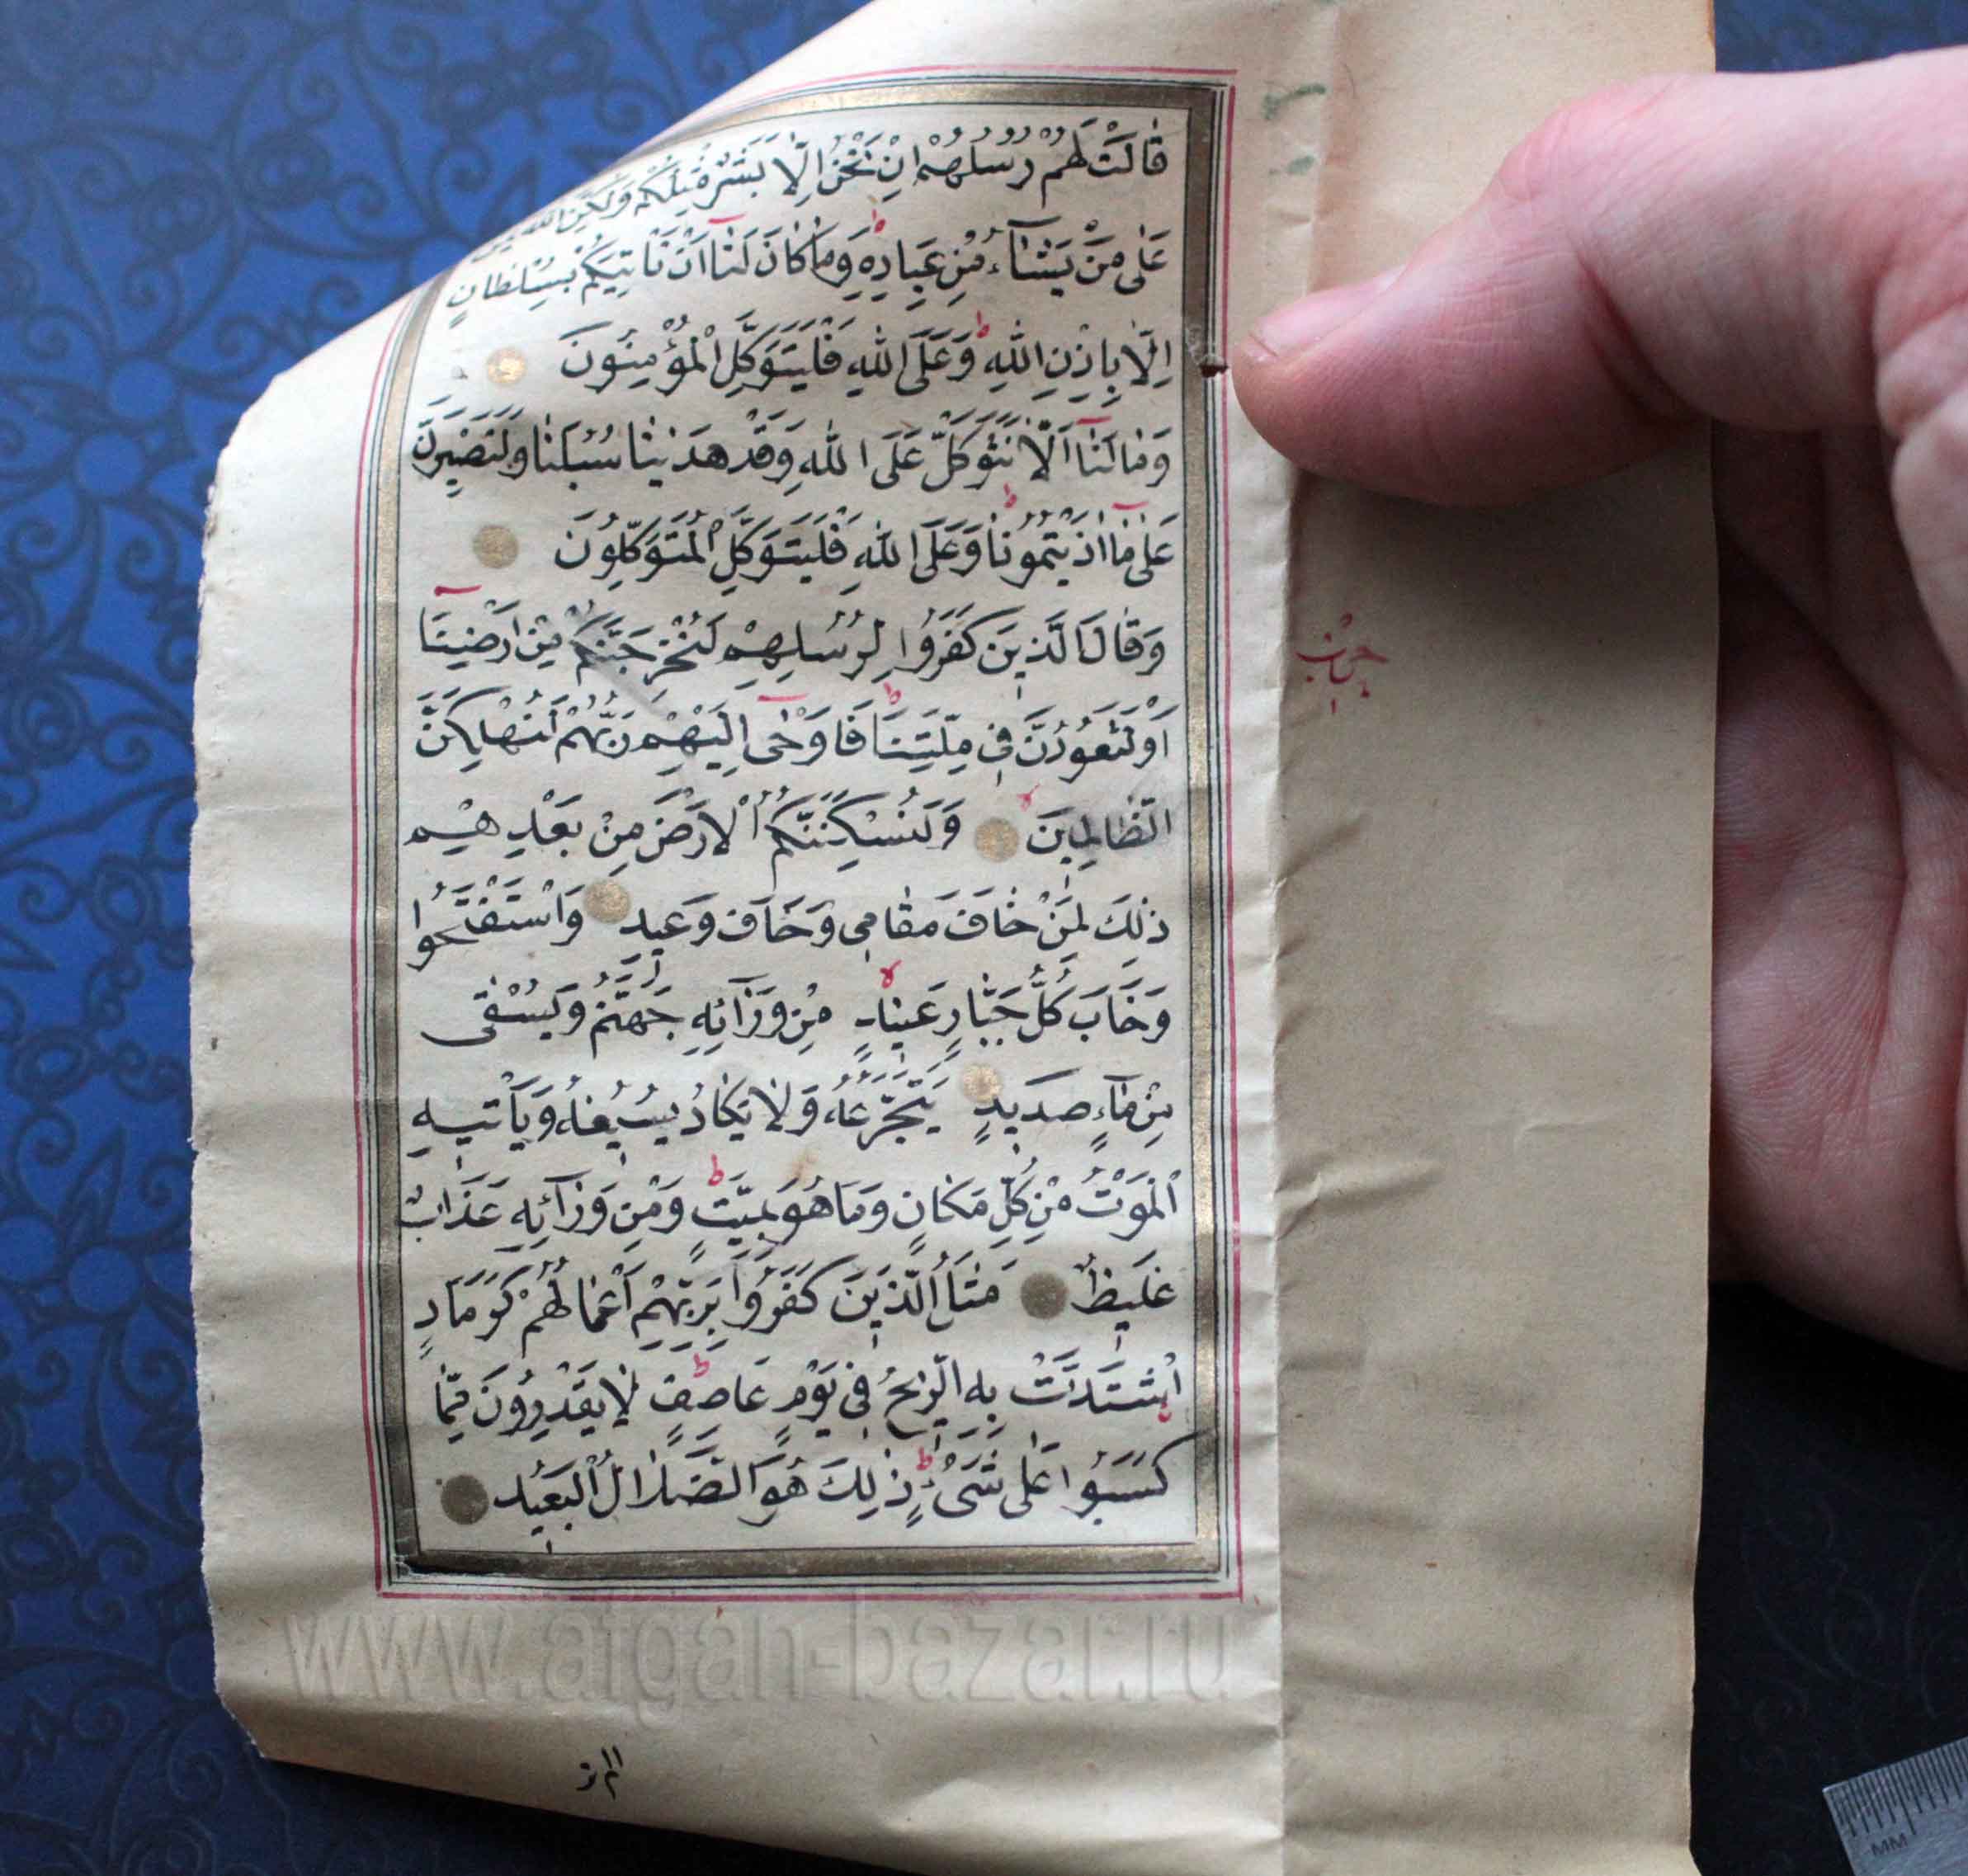 قَالَتْ لَهُمْ رُسُلُهُمْ اِنْ نَحْنُ اِلَّا بَشَرٌ مِثْلُكُمْ وَلٰكِنَّ اللّٰهَ
عَلٰى مَنْ يَشَآءُ مِنْ عِبَادِهٖ ط وَمَا كَانَ لَنَآ اَنْ نَأْتِيَكُمْ بِسُلْطَانٍ
اِلَّا بِاِذْنِ اللّٰهِ ط وَعَلَى اللّٰهِ فَلْيَتَوَكَّلِ الْمُؤْمِنُونَ
وَمَا لَنَآ اَلَّا نَتَوَكَّلَ عَلَى اللّٰهِ وَقَدْ هَدٰينَا سُبُلَنَا وَلَنَصْبِرَنَّ
عَلٰى مَآ اٰذَيْتُمُونَا ط وَعَلَى اللّٰهِ فَلْيَتَوَكَّلِ الْمُتَوَكِّلُونَ
وَقَالَ الَّذِينَ كَفَرُوا لِرُسُلِهِمْ لَنُخْرِجَنَّكُمْ مِنْ اَرْضِنَآ
اَوْ لَتَعُودُنَّ فِى مِلَّتِنَا ط فَاَوْحٰٓى اِلَيْهِمْ رَبُّهُمْ لَنُهْلِكَنَّ
الظَّالِمِينَ لا وَلَنُسْكِنَنَّكُمُ الْاَرْضَ مِنْ بَعْدِهِمْ
ذٰلِكَ لِمَنْ خَافَ مَقَامِى وَخَافَ وَعِيدِ وَاسْتَفْتَحُوا
وَخَابَ كُلُّ جَبَّارٍ عَنِيدٍ لا مِنْ وَرَآئِهٖ جَهَنَّمُ وَيُسْقٰى
مِنْ مَآءٍ صَدِيدٍ يَتَجَرَّعُهُ وَلَا يَكَادُ يُسِيغُهُ وَيَأْتِيهِ
الْمَوْتُ مِنْ كُلِّ مَكَانٍ وَمَا هُوَ بِمَيِّتٍ ط وَمِنْ وَرَآئِهٖ عَذَابٌ
غَلِيظٌ مَثَلُ الَّذِينَ كَفَرُوا بِرَبِّهِمْ اَعْمَالُهُمْ كَرَمَادٍ
اشْتَدَّتْ بِهِ الرِّيحُ فِى يَوْمٍ عَاصِفٍ ط لَا يَقْدِرُونَ مِمَّا
كَسَبُوا عَلٰى شَىْءٍ ط ذٰلِكَ هُوَ الضَّلَالُ الْبَعِيدُ
حزب
الم تر
www.afgan-bazar.ru
MM